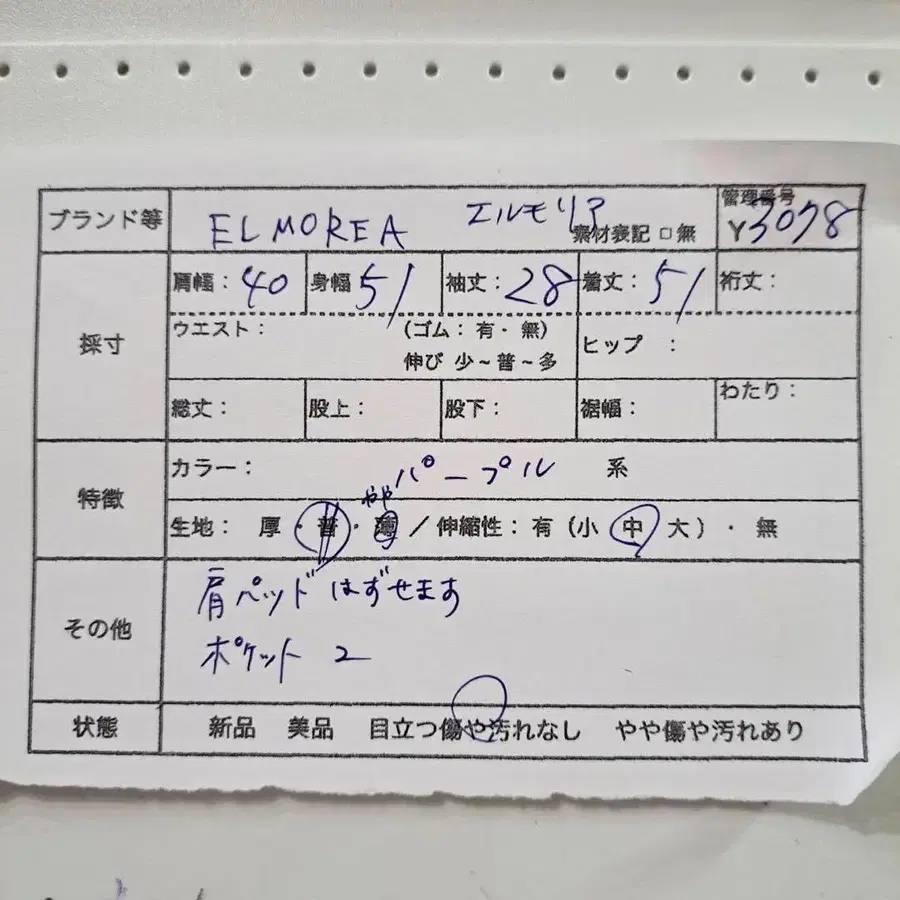 ブランド等 ELMOREA エルモリア 素材表記 □ 無 管理番号 Y3078
採寸 肩幅：40 身幅 51 袖丈：28 着丈：51 裄丈：
ウエスト： （ゴム：有・無） ヒップ ：
伸び 少～普～多
総丈： 股上： 股下： 裾幅： わたり：
特徴 カラー： パープル 系
やや
生地： 厚・普・薄 ／ 伸縮性：有（小 中 大）・ 無
その他 肩パッドはずせます
ポケット 2
状態 新品 美品 目立つ傷や汚れなし やや傷や汚れあり